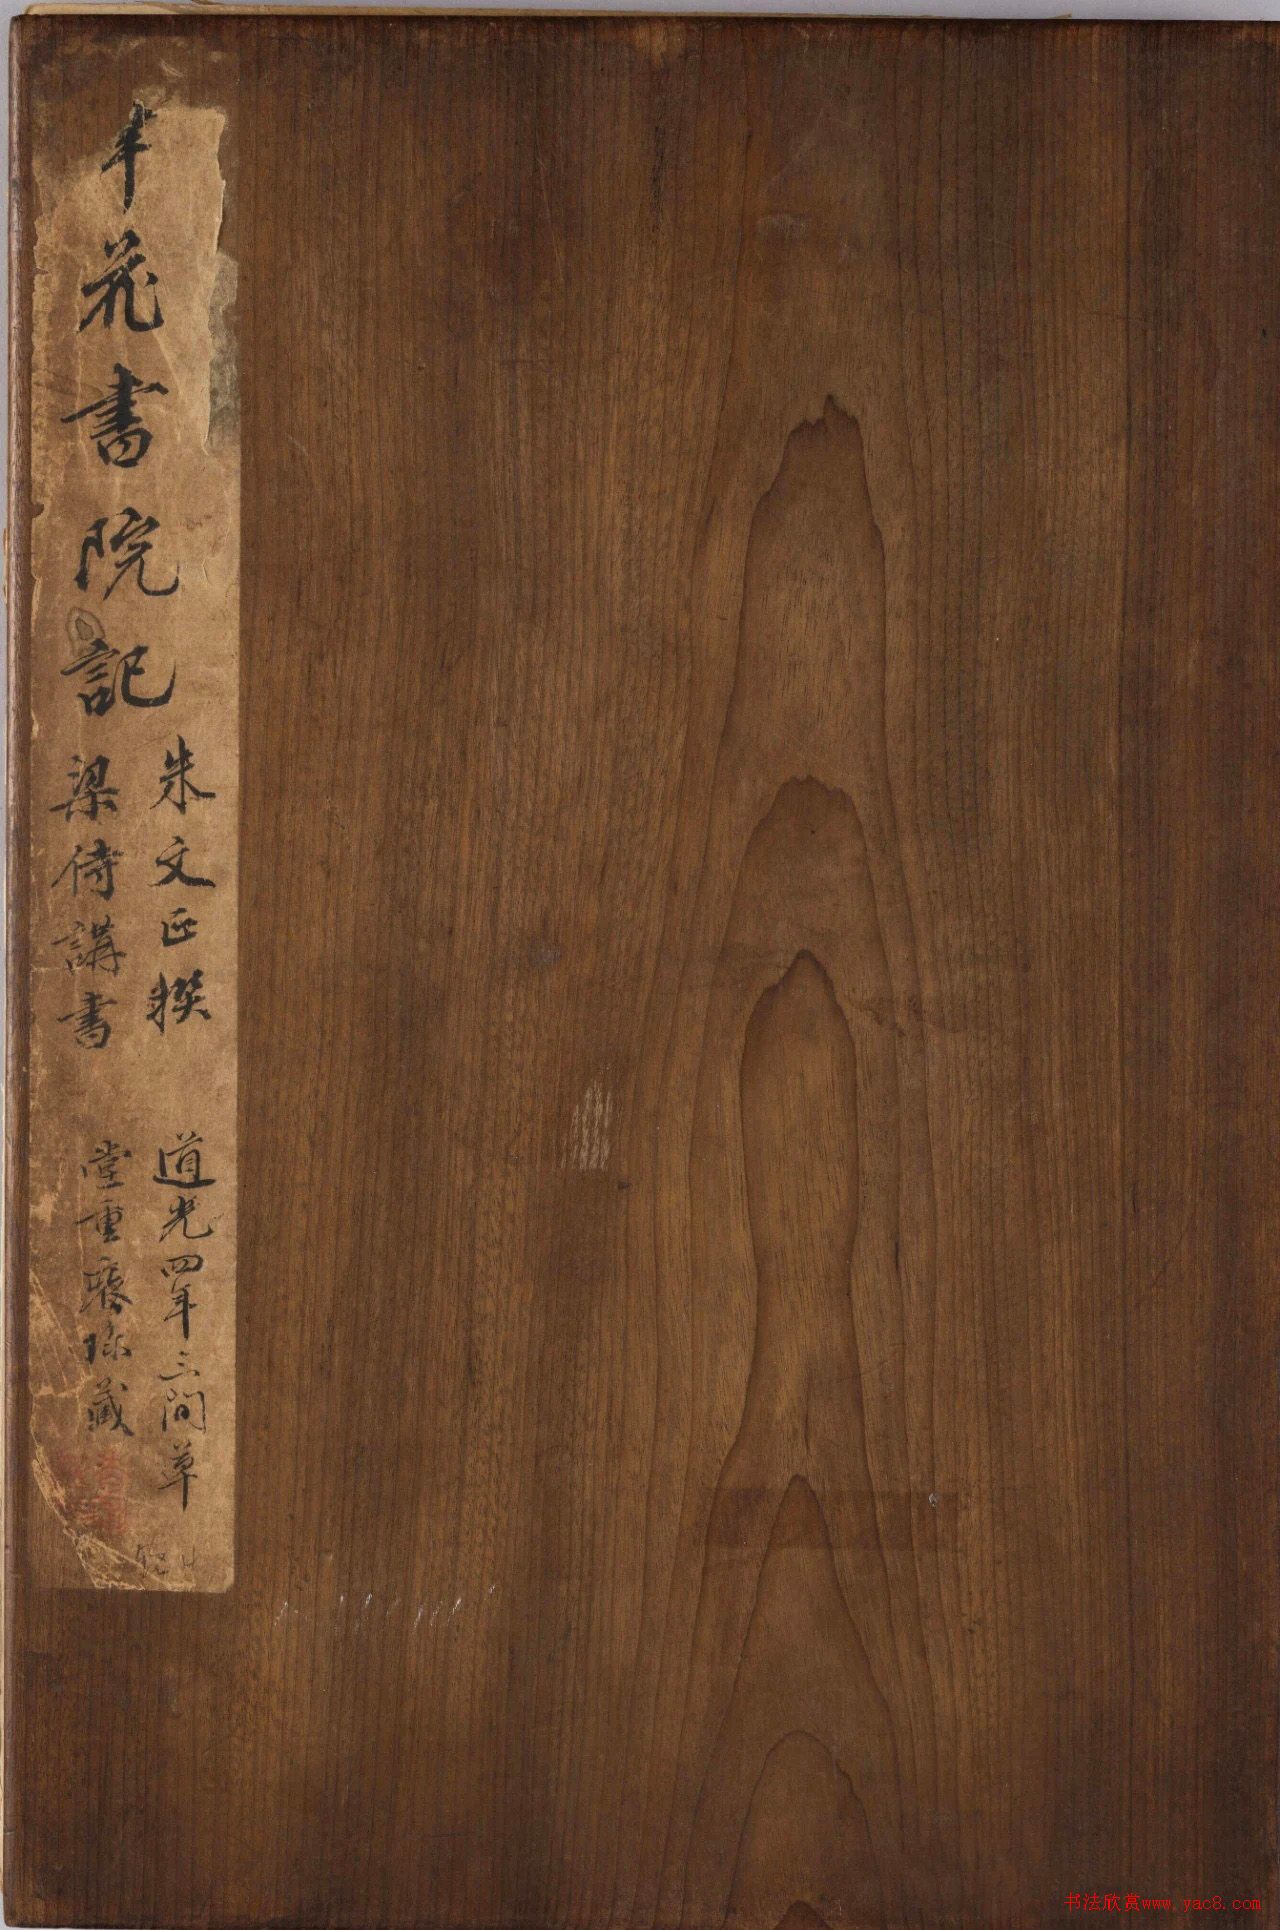 羊荒書院記
朱文正撰
梁侍講書
道光四年三間草
堂重裝珍藏
书法欣赏www.yac8.com